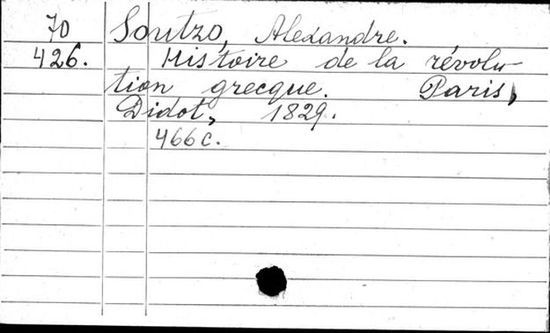 70 Soutzo, Alexandre.
426. Histoire de la révolu-
tion grecque. Paris,
Didot, 1829.
466 c.